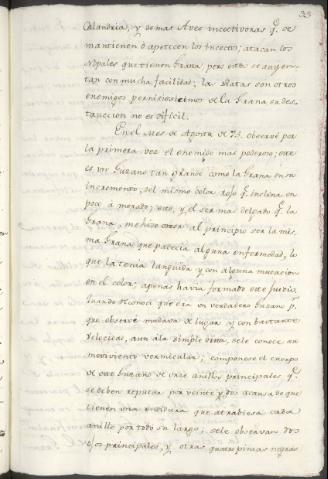 33
Calandria, y demas Aves incectivoras q.e se
mantienen ò apetecen los Incectos, atacan los
Nopales que tienen Grana, pero estas se auyen-
tan con mucha facilidad; las Ratas son otros
enemigos perniciosicimos de la Grana su des-
truccion no es dificil.
En el Mes de Agosto de 73. observé por
la primera vez el enemigo mas poderoso; este
es un Gusano tan grande como la Grana en su
incremento, del mismo color rojo q.e inclina un
poco á morado; este, y el ser mas delgado q.e la
Grana, me hizo creer al principio ser la mis-
ma Grana que padecia alguna enfermedad, q.e
la tenia languida y con alguna mutacion
en el color; apenas havia formado este juicio
quando reconocí que era un verdadero Gusano p.r
que observé mudava de lugar, y con bastante
velocidad, aun á la simple vista, se le conoce un
movimiento vermicular; componese el cuerpo
de este Gusano de onze anillos principales q.e
se deben reputar por veinte y dos á causa de que
tienen una endidura que atrabiesa cada
anillo por todo su largo; se le observan dos
ojos principales, y otras quatro pintas negras